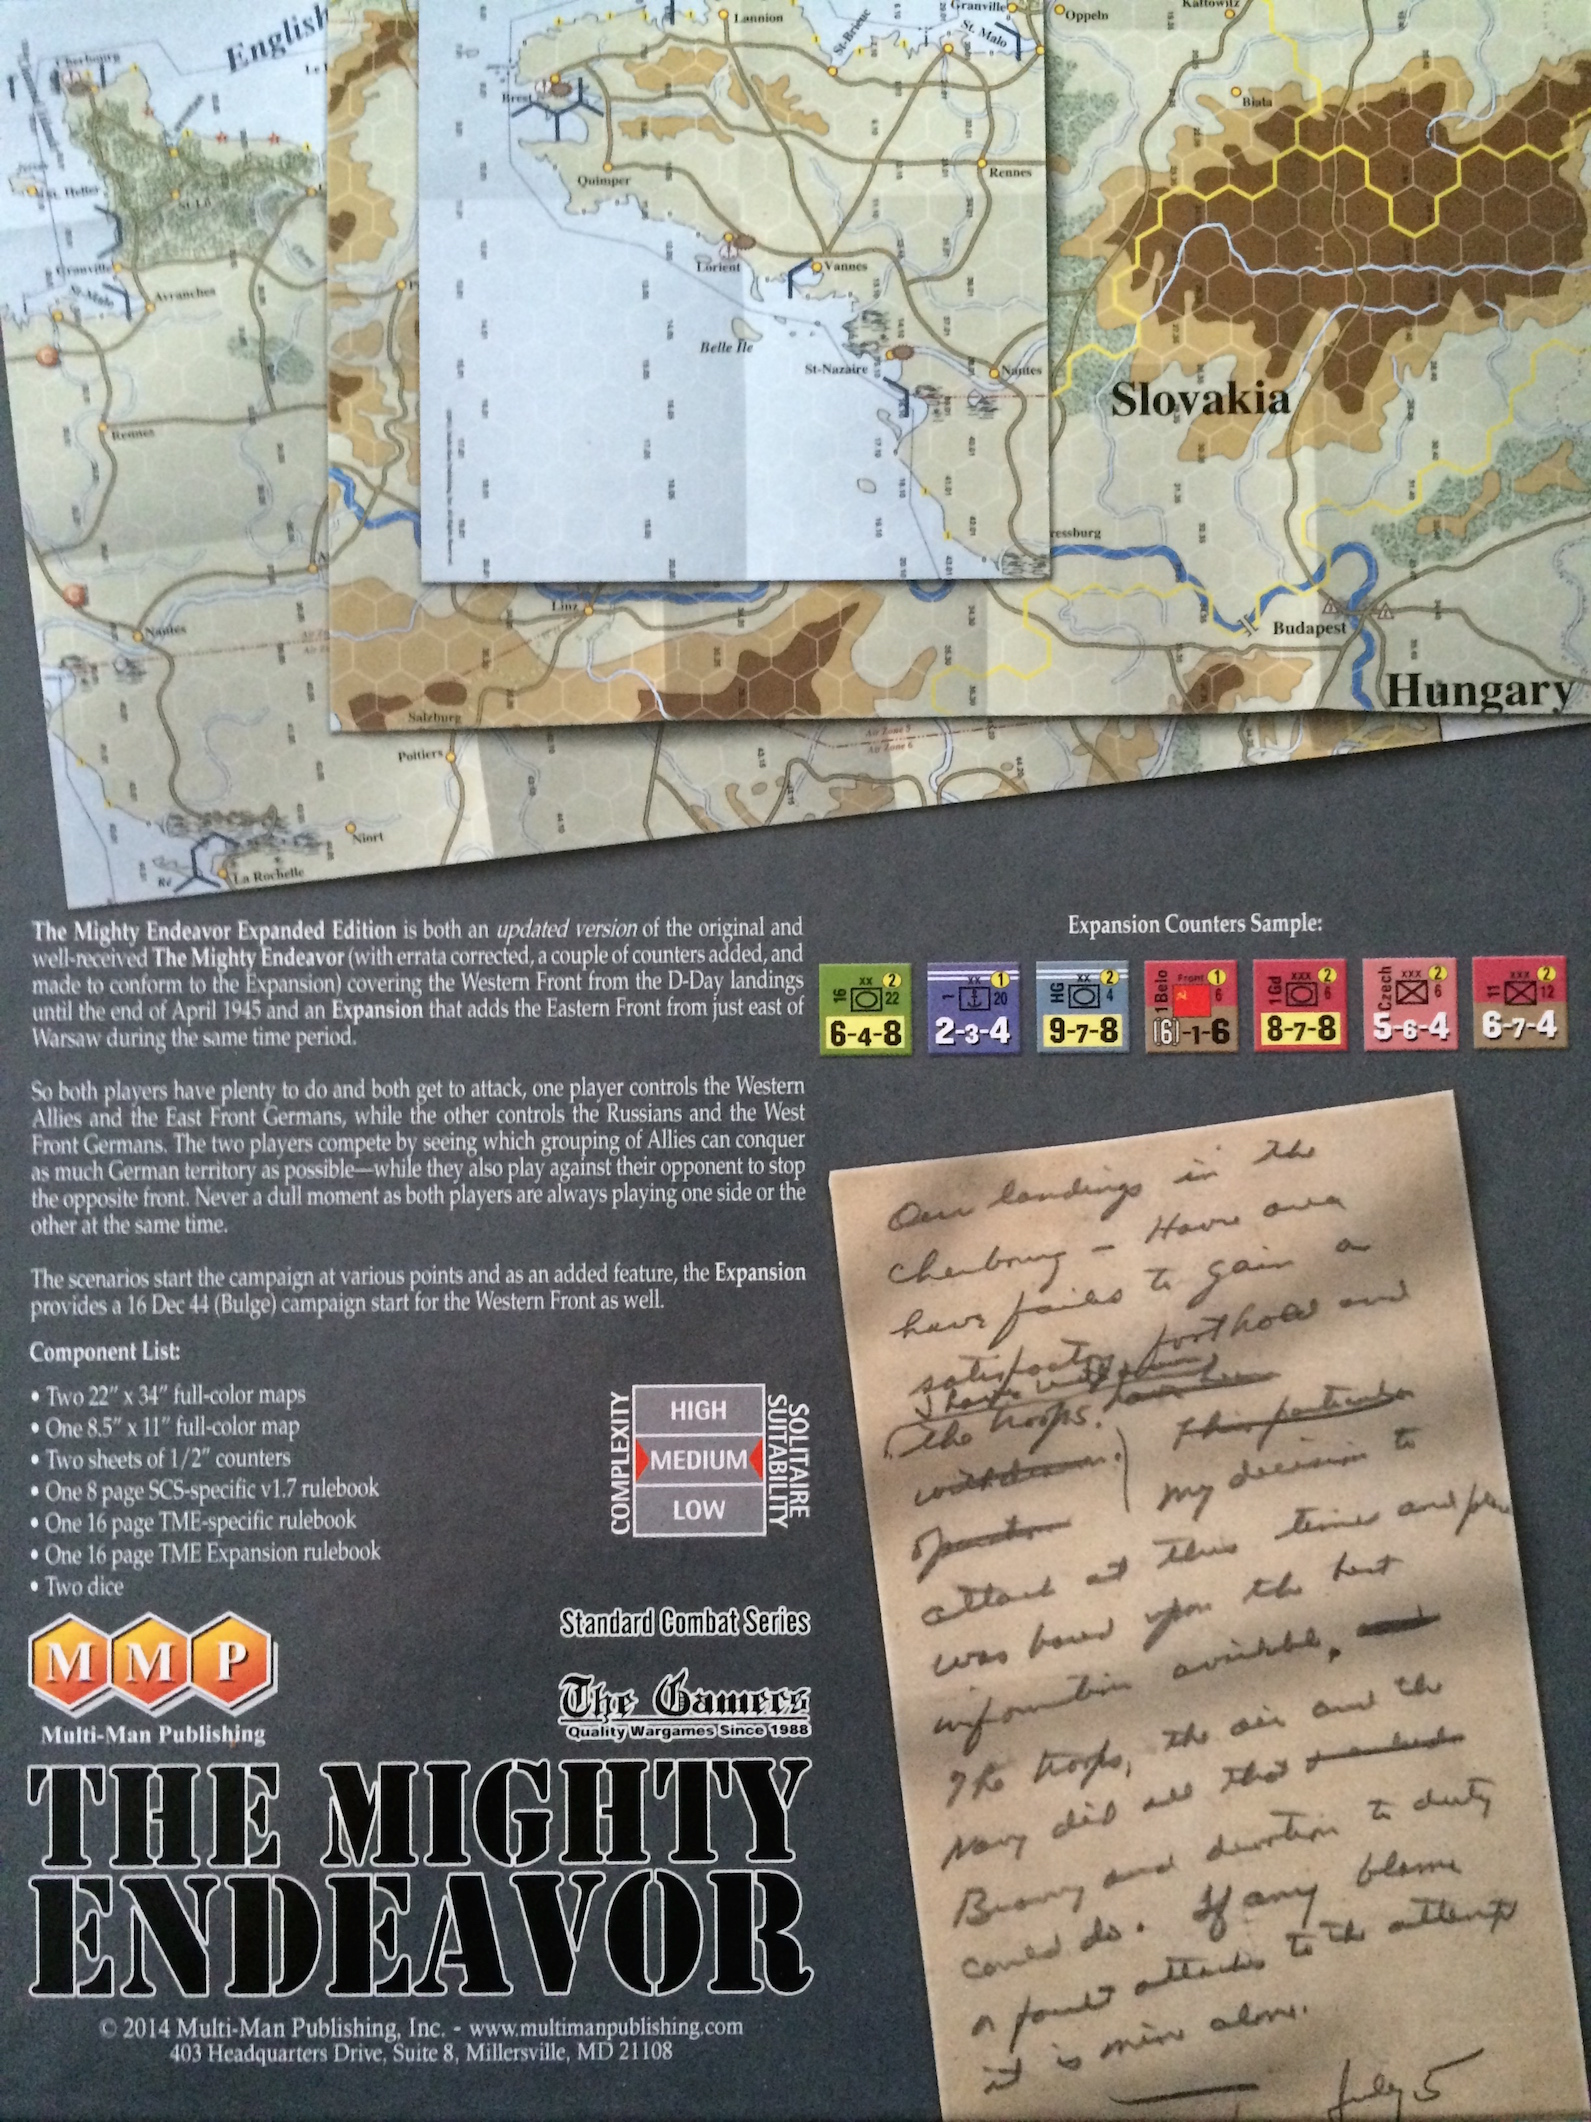 English
Cherbourg
St. Helier
St-Lô
Granville
St-Malo
Avranches
Rennes
Nantes
Poitiers
Niort
Ré
La Rochelle
Lannion
St-Brieuc
Granville
St. Malo
Brest
Quimper
Rennes
Lorient
Vannes
Belle Ile
St-Nazaire
Nantes
Oppeln
Kattowitz
Biala
Slovakia
ressburg
Linz
Budapest
Hungary
Salzburg
Air Zone 5
Air Zone 6
The Mighty Endeavor Expanded Edition is both an updated version of the original and
well-received The Mighty Endeavor (with errata corrected, a couple of counters added, and
made to conform to the Expansion) covering the Western Front from the D-Day landings
until the end of April 1945 and an Expansion that adds the Eastern Front from just east of
Warsaw during the same time period.
So both players have plenty to do and both get to attack, one player controls the Western
Allies and the East Front Germans, while the other controls the Russians and the West
Front Germans. The two players compete by seeing which grouping of Allies can conquer
as much German territory as possible—while they also play against their opponent to stop
the opposite front. Never a dull moment as both players are always playing one side or the
other at the same time.
The scenarios start the campaign at various points and as an added feature, the Expansion
provides a 16 Dec 44 (Bulge) campaign start for the Western Front as well.
Component List:
• Two 22″ x 34″ full-color maps
• One 8.5″ x 11″ full-color map
• Two sheets of 1/2″ counters
• One 8 page SCS-specific v1.7 rulebook
• One 16 page TME-specific rulebook
• One 16 page TME Expansion rulebook
• Two dice
COMPLEXITY
HIGH
MEDIUM
LOW
SOLITAIRE
SUITABILITY
MMP
Multi-Man Publishing
Standard Combat Series
The Gamers
Quality Wargames Since 1988
THE MIGHTY
ENDEAVOR
© 2014 Multi-Man Publishing, Inc. - www.multimanpublishing.com
403 Headquarters Drive, Suite 8, Millersville, MD 21108
Expansion Counters Sample:
16 xx 2 22
6-4-8
1 xx 1 20
2-3-4
HG xx 2 4
9-7-8
1 Belo Front 1 6
(6)-1-6
1 Gd xxx 2 6
8-7-8
Czech xxx 2 6
5-6-4
11 xxx 2 12
6-7-4
Our landings in the
Cherbourg - Havre area
have failed to gain a
satisfactory foothold and
I have withdrawn
the troops. have been
withdrawn. This particular
operation My decision to
attack at this time and place
was based upon the best
information available, and
The troops, the air and the
Navy did all that
Bravery and devotion to duty
could do. If any blame
or fault attaches to the attempt
it is mine alone.
July 5